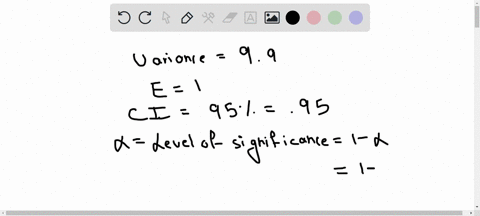 Variance = 9.9
E = 1
CI = 95% = .95
α = Level of significance = 1 - α
= 1 -